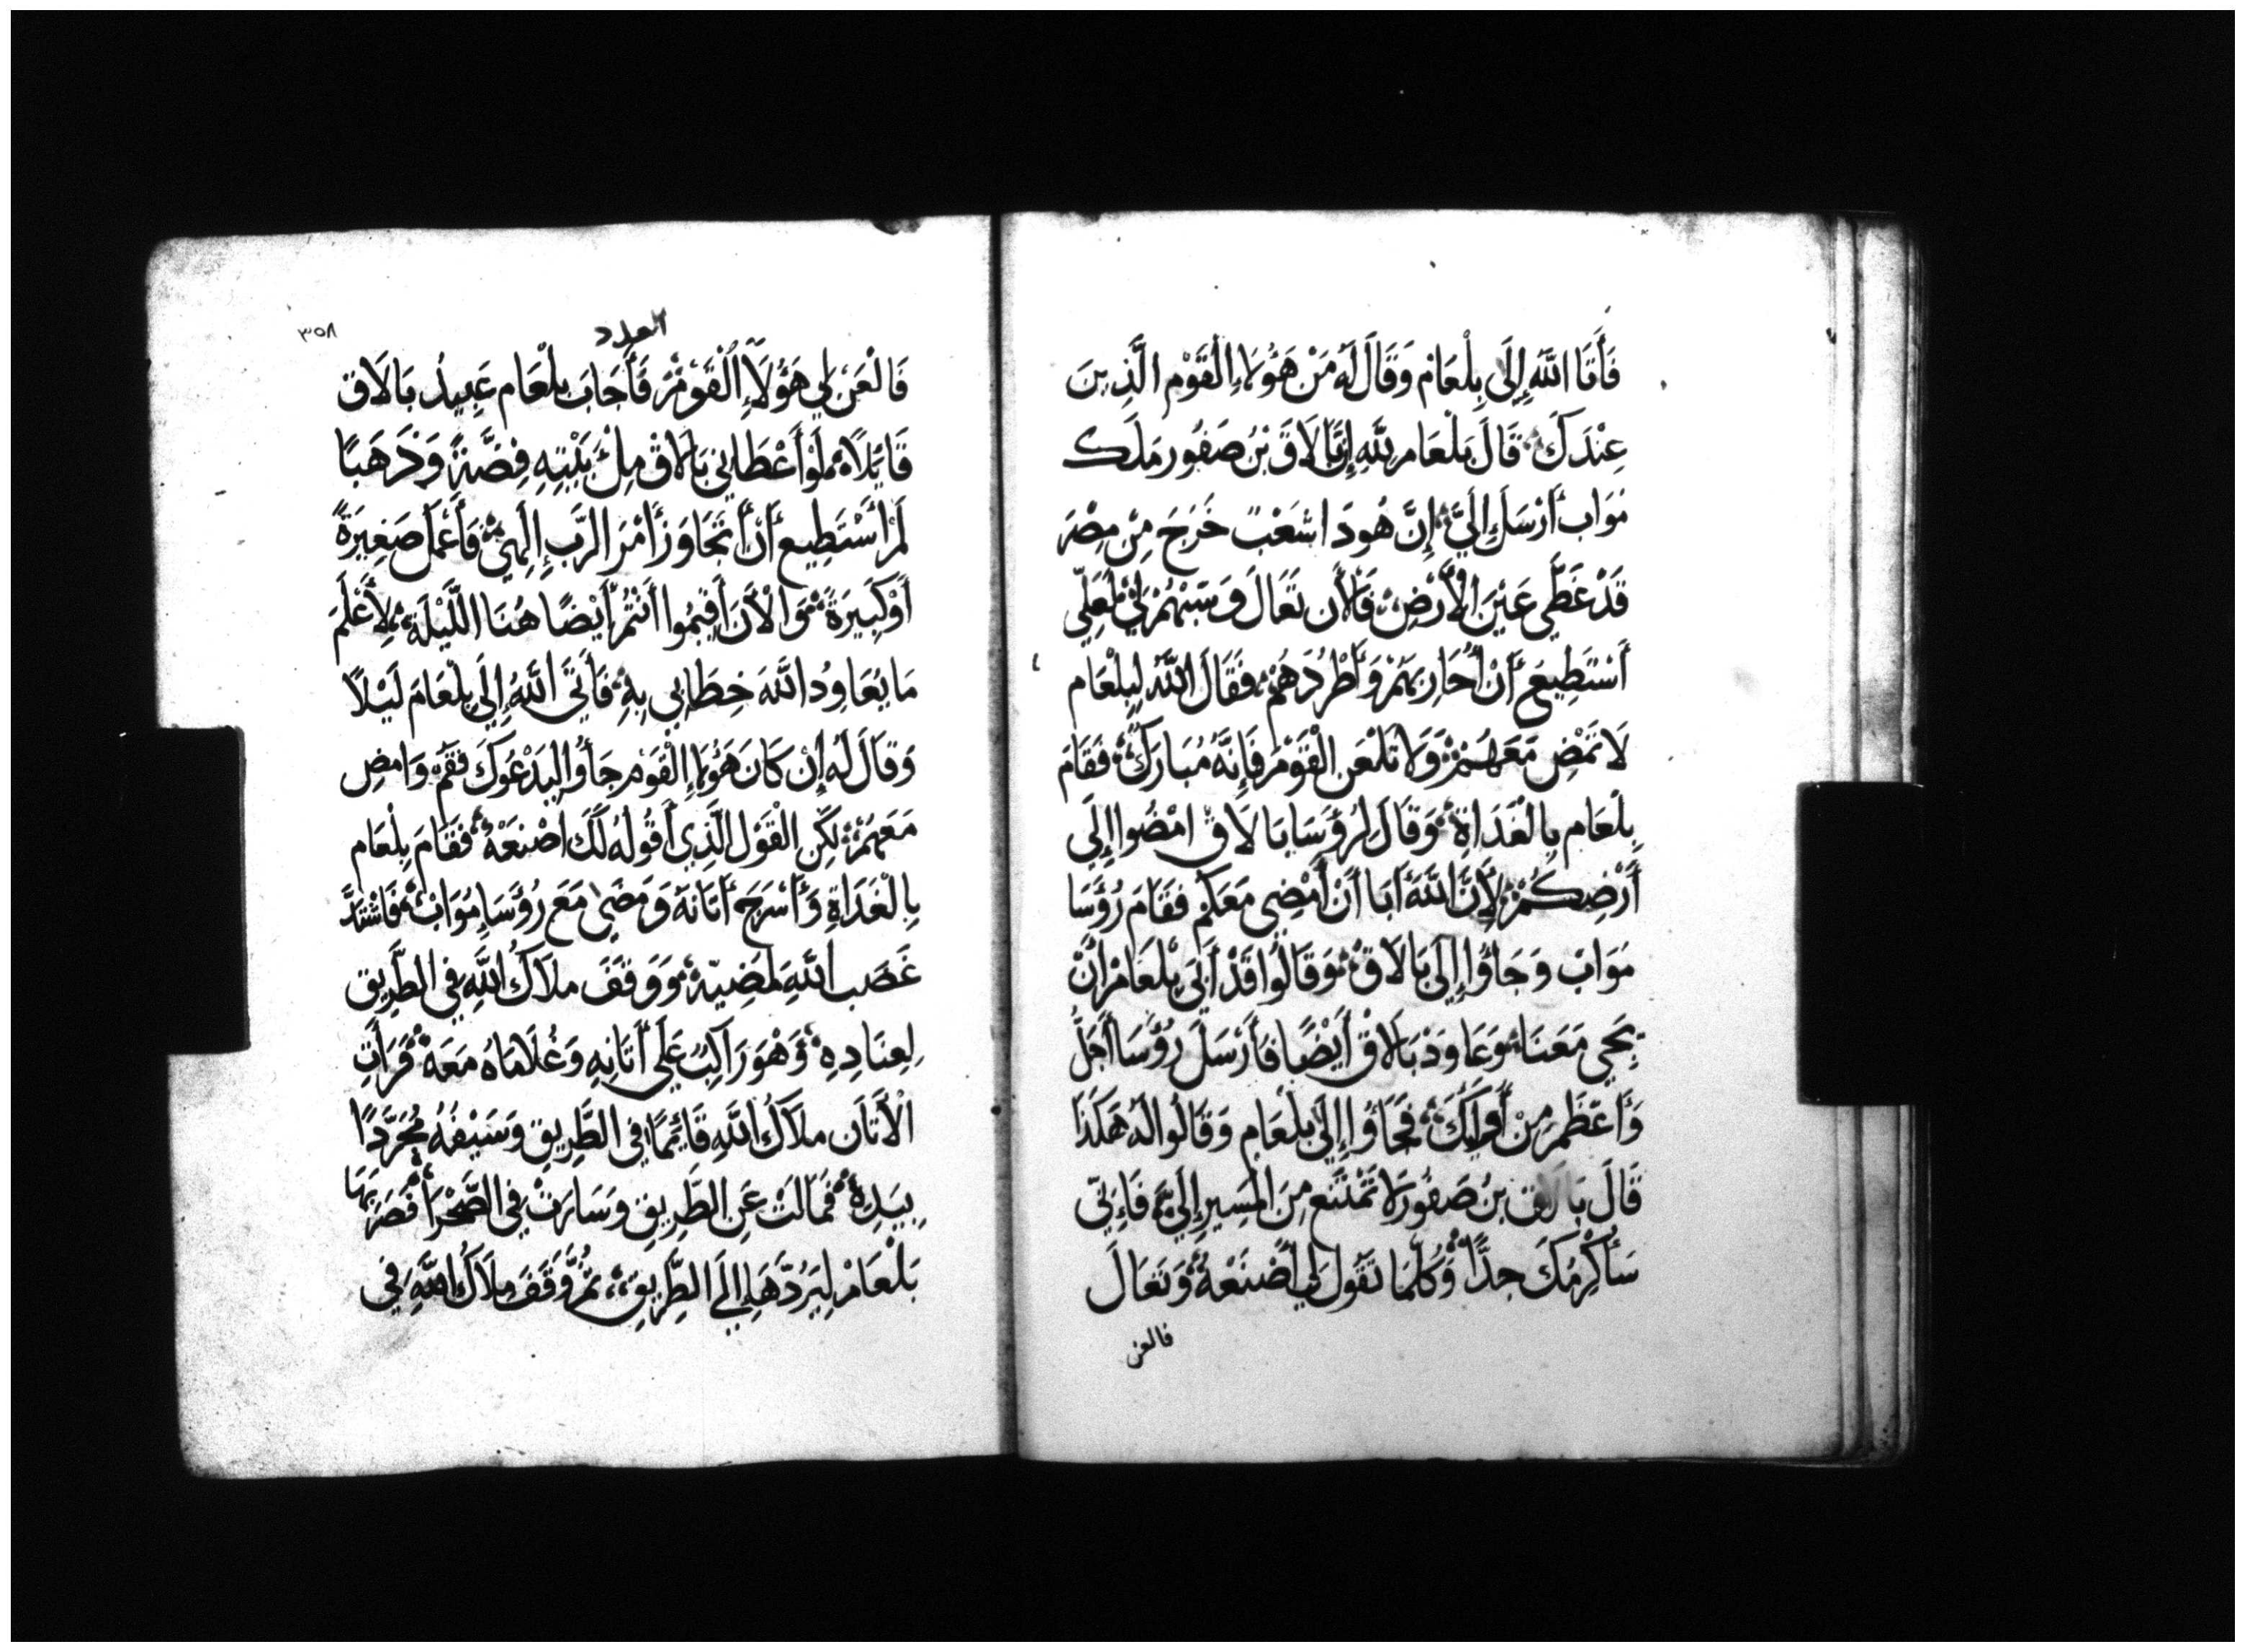 فَأَتَا اللَّهُ إِلَى بِلْعَام وَقَالَ لَهُ مَنْ هَؤُلَاءِ الْقَوْمِ الَّذِينَ
عِنْدَكَ قَالَ بَلْعَام لِلَّهِ إِنَّ بَالَاقَ بْنُ صَفُور مَلَك
مُوَاب أَرْسَلَ إِلَيَّ إِنَّ هُودَا شَعْبٌ خَرَجَ مِنْ مِصْرَ
قَدْ غَطَّى عَيْنَ الْأَرْضِ فَالْأَن تَعَالَ وَسِبْهُمْ لِي لَعَلِّي
أَسْتَطِيعَ أَنْ أُحَارِبَهُمْ وَأَطْرُدَهُمْ فَقَالَ اللَّهُ لِبِلْعَام
لَا تَمْضِ مَعَهُمْ وَلَا تَلْعَنِ الْقَوْمَ فَإِنَّهُ مُبَارَكٌ فَقَامَ
بِلْعَام بِالْغَدَاةِ وَقَالَ لِرُؤَسَا بَالَاق امْضُوا إِلَى
أَرْضِكُمْ لِأَنَّ اللَّهَ أَبَا أَنْ أَمْضِي مَعَكُمْ فَقَامَ رُؤَسَا
مُوَاب وَجَاؤُا إِلَى بَالَاقَ وَقَالُوا قَدْ أَبَى بَلْعَام أَنْ
يَجِي مَعَنَا وَعَاوَدَ بَالَاقْ أَيْضًا فَأَرْسَلَ رُؤَسَا أَجَلُّ
وَأَعْظَمَ مِنْ أُولَئِكَ فَجَاؤُا إِلَى بِلْعَام وَقَالُوا لَهُ هَكَذَا
قَالَ بَالَاق بنُ صَفُورَ لَا تَمْتَنِع مِنَ الْمَسِيرِ إِلَيَّ فَإِنِّي
سَأُكْرِمُكَ جِدًّا وَكُلَّمَا تَقُول لِي أَصْنَعُهُ وَتَعَالَ
فالعن
العدد
٣٥٨
فَالْعَنْ لِي هَؤُلَاءِ الْقَوْمْ فَأَجَابَ بِلْعَام عَبِيدُ بَالَاق
قَائِلًا لَوْ أَعْطَانِي بَالَاقْ مِلْءَ بَيْتِهِ فِضَّةً وَذَهَبًا
لَمْ أَسْتَطِيع أَنْ أَتَجَاوَزَ أَمْرَ الرَّبِ إِلَهِي فَأَعْمَل صَغِيرَةً
أَوْ كَبِيرَةً وَالْأَنَ أَقِيمُوا أَنْتُمْ أَيْضًا هُنَا اللَّيْلَةَ لِأَعْلَمَ
مَا يُعَاوِدُ اللَّهَ خِطَابِي بِهِ فَأَتَى اللَّهُ إِلَى بِلْعَامَ لَيْلًا
وَقَالَ لَهُ إِنْ كَانَ هَؤُلَاءِ الْقَوْمِ جَاؤُا لِيَدْعُوكَ فَقُمْ وَامضِ
مَعَهُمْ لَكِنِ الْقَوْلَ الَّذِي أَقُولُهُ لَكَ اصْنَعْهُ فَقَامَ بِلْعَام
بِالْغَدَاةِ وَأَسْرَجَ أَتَانَهُ وَمَضَى مَعَ رُؤَسَا مُوَاب فَاشْتَدَّ
غَضَب اللَّهِ لِمَضِيِّهِ وَوَقَفَ مَلَاكُ اللَّهِ فِي الطَّرِيق
لِعِنَادِهِ وَهُوَ رَاكِبٌ عَلَى أَتَانِهِ وَغُلَامَاهُ مَعَهُ فَرَأَتِ
الْأَتَان مَلَاكُ اللَّهِ قَائِمًا فِي الطَّرِيقِ وَسَيْفُهُ مُجَرَّدًا
بِيَدِهِ فَمَالَتْ عَنِ الطَّرِيقِ وَسَارَتْ فِي الصَّحْرَا فَضَرَبَهَا
بَلْعَامْ لِيَرُدَّهَا إِلَى الطَّرِيقِ ثُمَّ وَقَفَ مَلَاكُ اللَّهِ فِي